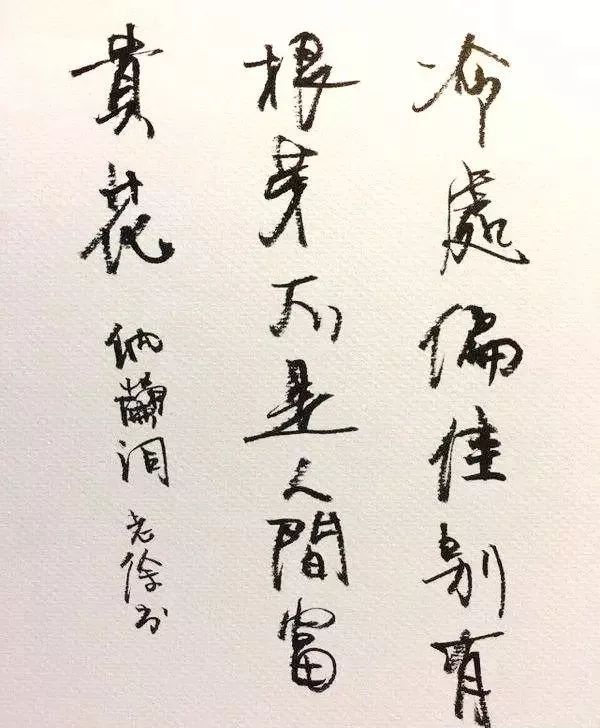 冷處偏佳别有
根芽不是人間富
貴花
納蘭词 老徐书